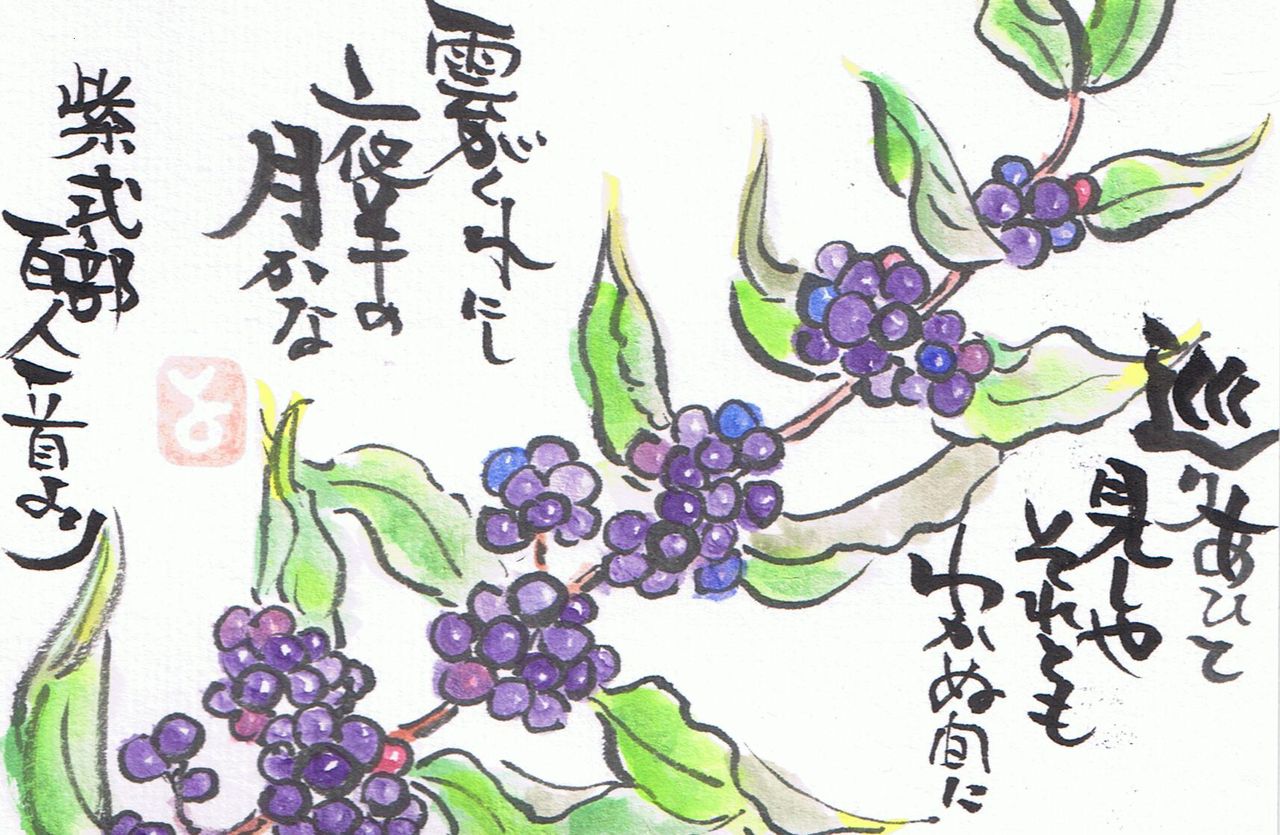 巡りあひて
見しや
それとも
わかぬ間に
雲がくれにし
夜半の
月かな
紫式部
百人一首より